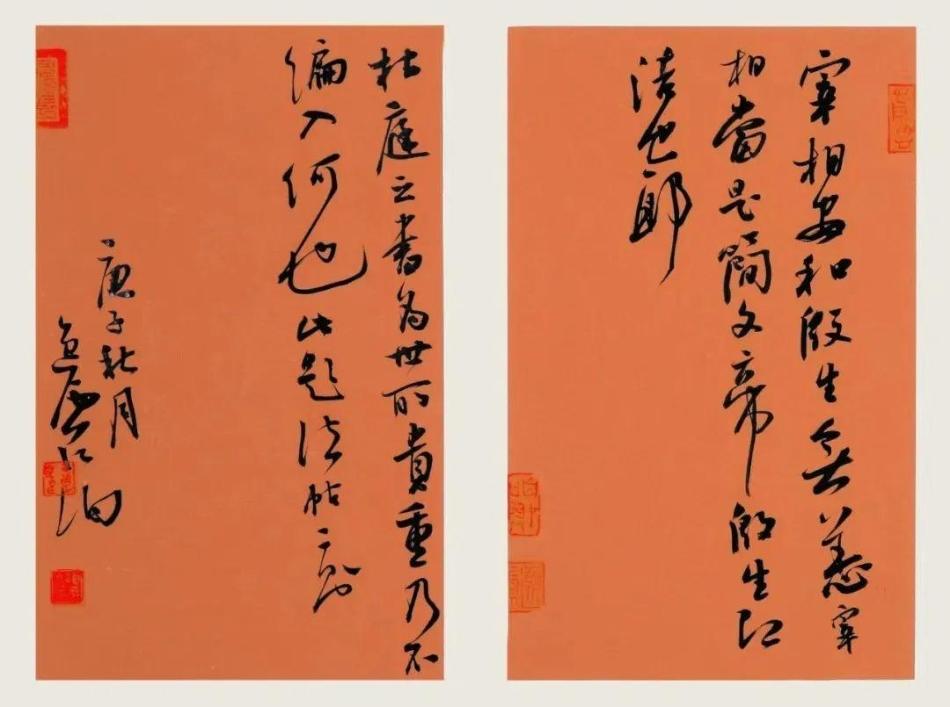 宰相安和殷生無恙宰
相當是簡文帝殷生即
浩也耶
杜庭之書為世所貴重乃不
編入何也此題法帖二則
庚子秋月